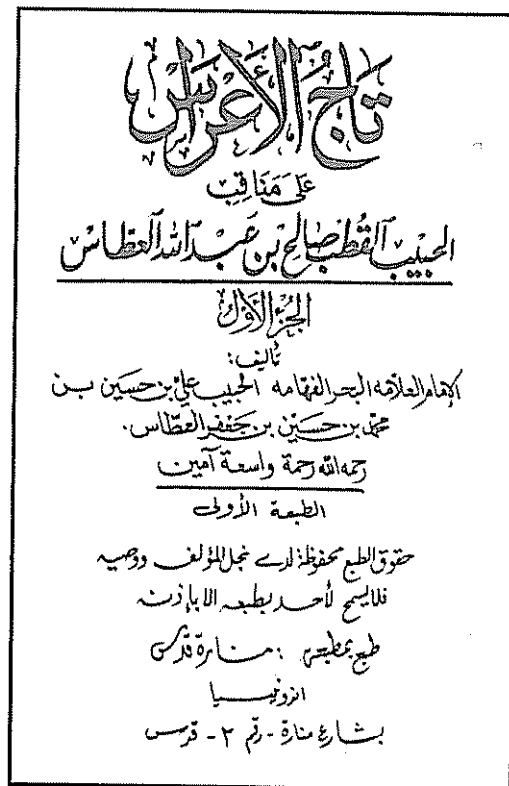 تاجُ الأعراس
عَلَى مَنَاقِبِ
الحبيب القُطب صالح بن عَبد الله العطاس
الجُزءُ الأوّل
تأليف:
الإمام العلامه البحر الفهامه الحبيب علي بن حسين بن
محمد بن حسين بن جعفر العطّاس.
رحمه الله رحمة واسعة آمين
الطبعة الأولى
حقوق الطبع محفوظة لدى نجل المؤلف ووصيه
فلا يسمح لأحد بطبعه الا بإذنه
طبع بمطبعة : منارة قدس
اندونيسيا
بشارع منارة - رقم ٢ - قدس